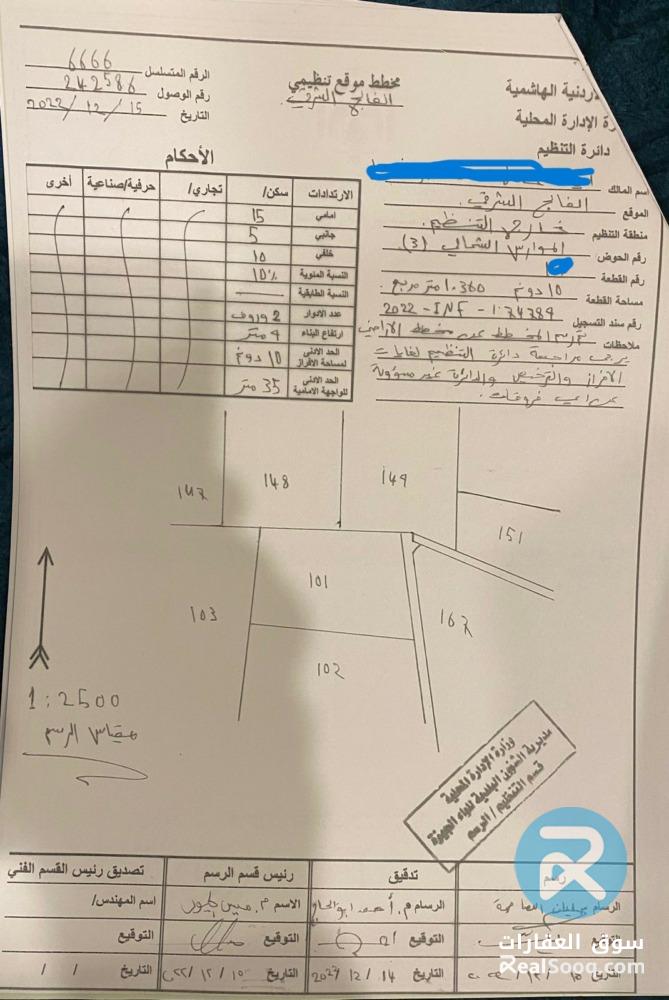 ردنية الهاشمية
رة الإدارة المحلية
دائرة التنظيم
مخطط موقع تنظيمي
الفالج الشرقي
الرقم المتسلسل 6666
رقم الوصول 242586
التاريخ 2022/12/15
اسم المالك
الموقع الفالج الشرقي.
منطقة التنظيم خارج التنظيم.
رقم الحوض الموارس الشمالي (3)
رقم القطعة
مساحة القطعة 10 دونم 360.1 متر مربع
رقم سند التسجيل 2022-INF-
ملاحظات تم رسم المخطط عن مخطط الأراضي
يرجى مراجعة دائرة التنظيم لغايات
الافراز والترخيص والدائرة غير مسؤولة
عن اي فروقات.
الأحكام
الارتدادات سكن/ تجاري/ حرفية/صناعية أخرى
امامي 15
جانبي 5
خلفي 10
النسبة المئوية 10%
النسبة الطابقية
عدد الادوار 2 وروف
ارتفاع البناء 4 متر
الحد الادنى لمساحة الافراز 10 دونم
الحد الادنى للواجهة الامامية 35 متر
147
148
149
151
101
103
102
167
1:2500
مقياس الرسم
وزارة الإدارة المحلية
مديرية الشؤون البلدية للواء الجيزة
قسم التنظيم / الرسم
رسم تدقيق رئيس قسم الرسم تصديق رئيس القسم الفني
الرسام الرسام م. أحمد ابو الاسم م. اسم المهندس/
التوقيع التوقيع التوقيع التوقيع
التاريخ 15/12/2022 التاريخ 14/12/2022 التاريخ 15/12/22 التاريخ / /
سوق العقارات
RealSooq.com